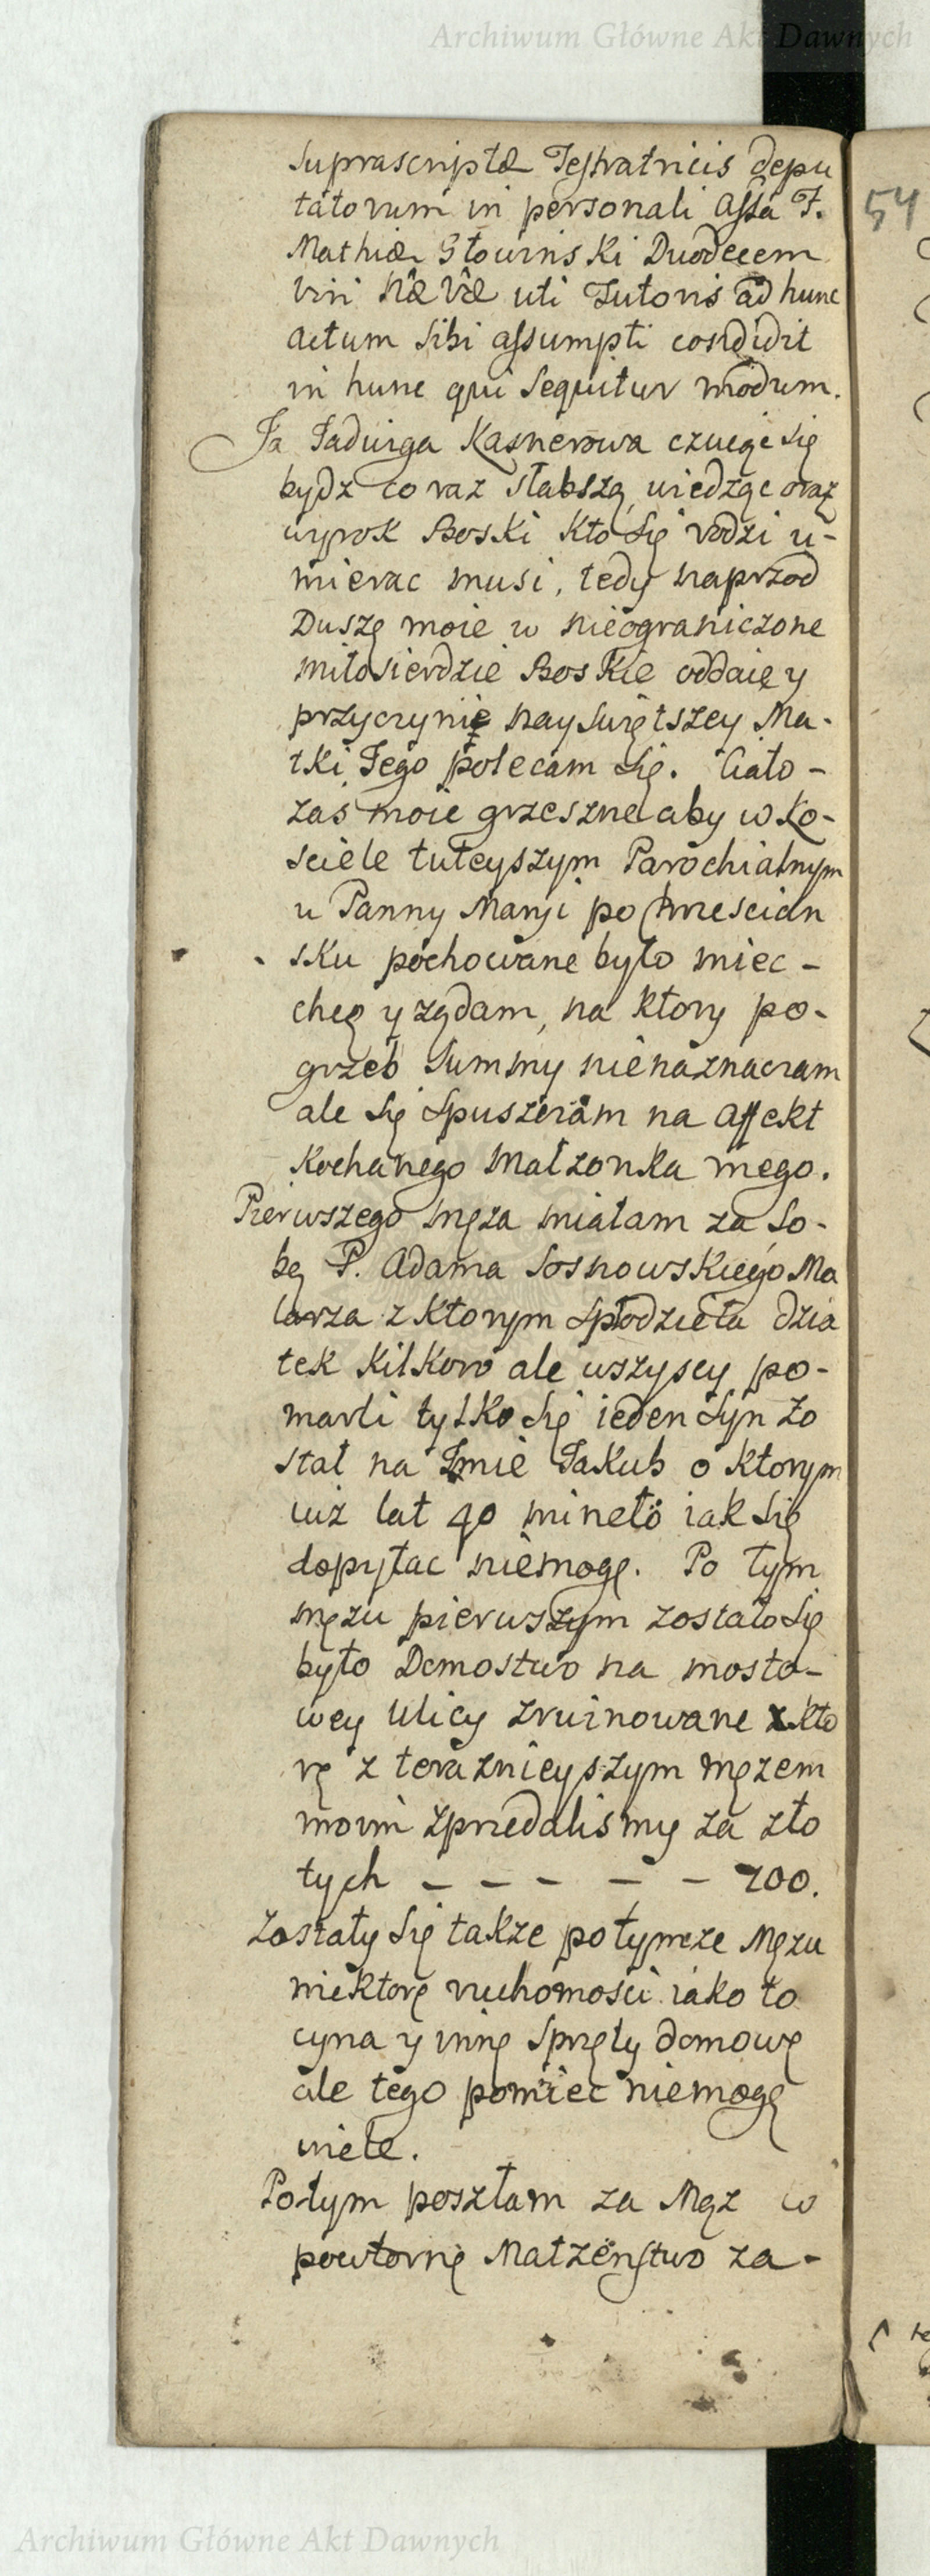 Archiwum Główne Akt Dawnych
suprascriptæ Testratricis depu
tatorum in personali Assa F.
Mathiæ Słowinski Duodecem
viri næ væ uti Tutoris ad hunc
actum sibi assumpti condidit
in hunc qui sequitur modum.
54
Ja Jadwiga Kasnerowa czuięc się
bydz co raz słabszą, wiedząc oraz
wyrok Boski kto się rodzi u-
mierac musi, tedy naprzod
Duszę moie w nieograniczone
miłosierdzie Boskie oddaię y
przyczynie nayswiętszey Ma-
tki Jego polecam się. Ciało-
zas moie grzeszne aby w Ko-
sciele tuteyszym Parochialnym
u Panny Maryi po chrzescian
sku pochowane było miec-
chcę y ządam, na ktory po-
grzeb summy nienaznaczam
ale się spuszczam na affekt
kochanego małzonka mego.
Pierwszego męza miałam za so-
bą P. Adama Sosnowskiego Ma
larza z ktorym spłodzieła dzia
tek kilkoro ale wszyscy po-
marli tylko się ieden syn zo
stał na Imie Jakub o ktorym
iuz lat 40 mineło iak się
dopytac niemogę. Po tym
męzu pierwszym zostało się
było Domostwo na mosto-
wey Ulicy zruinowane kto
rę z teraznieyszym męzem
moim zprzedalismy za zło
tych - - - - - 700.
Zostały się takze po tymze Męzu
niektorę ruchomosci iako to
cyna y innę sprzęty domowę
ale tego pomiec niemogę
wiele.
Potym poszłam za Mąz w
powtornę Małzenstwo za-
Archiwum Główne Akt Dawnych